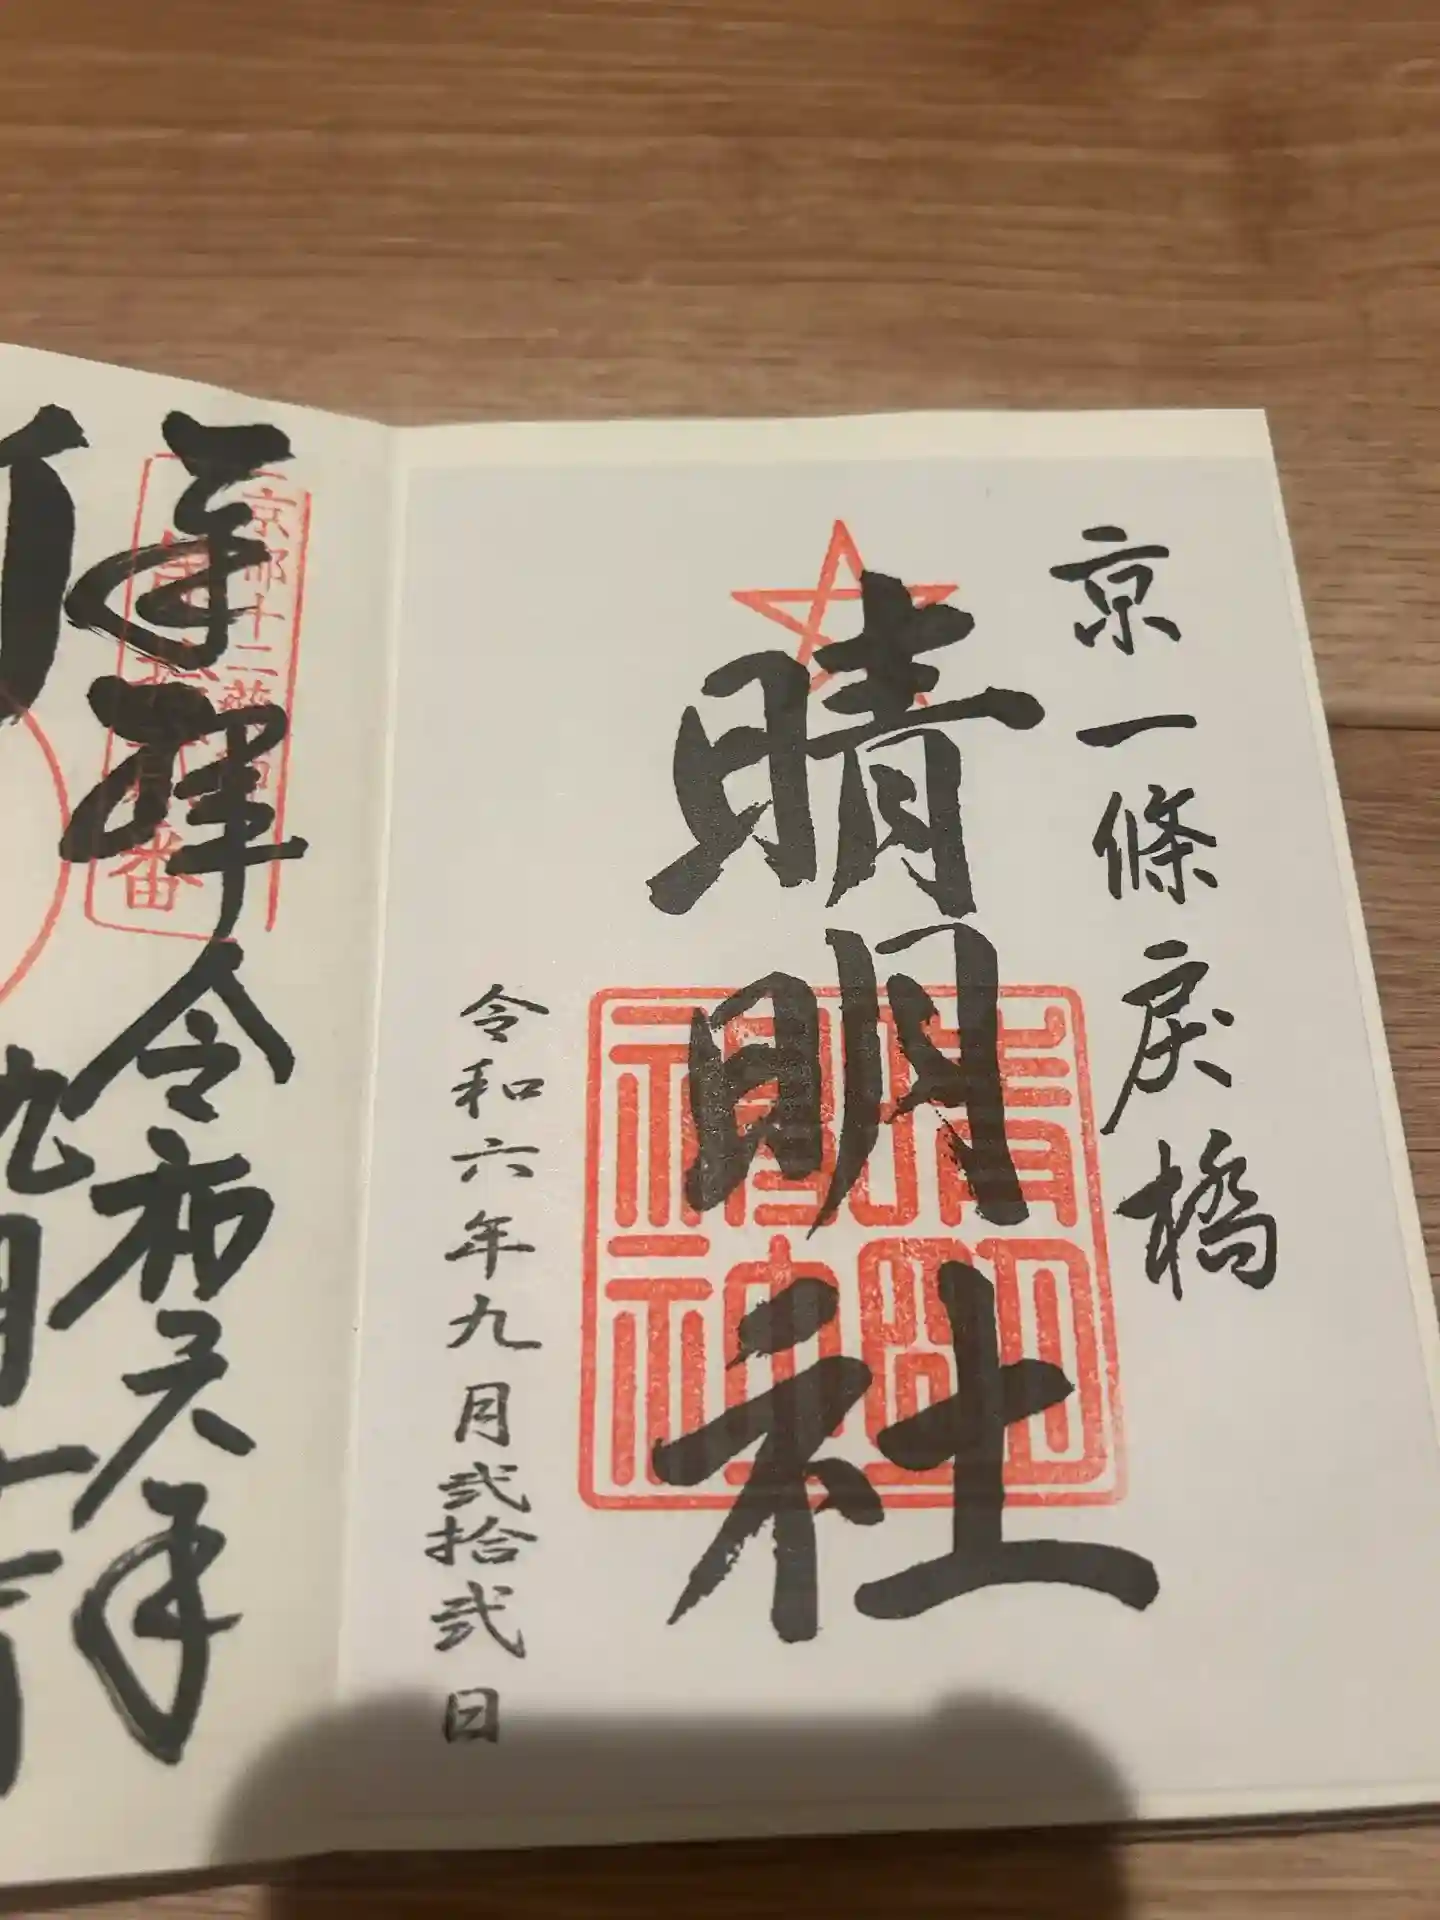 京一條戻橋
晴明社
晴明神社
令和六年九月弐拾弐日
奉拝
令和六年
京都十二薬師
番
九月